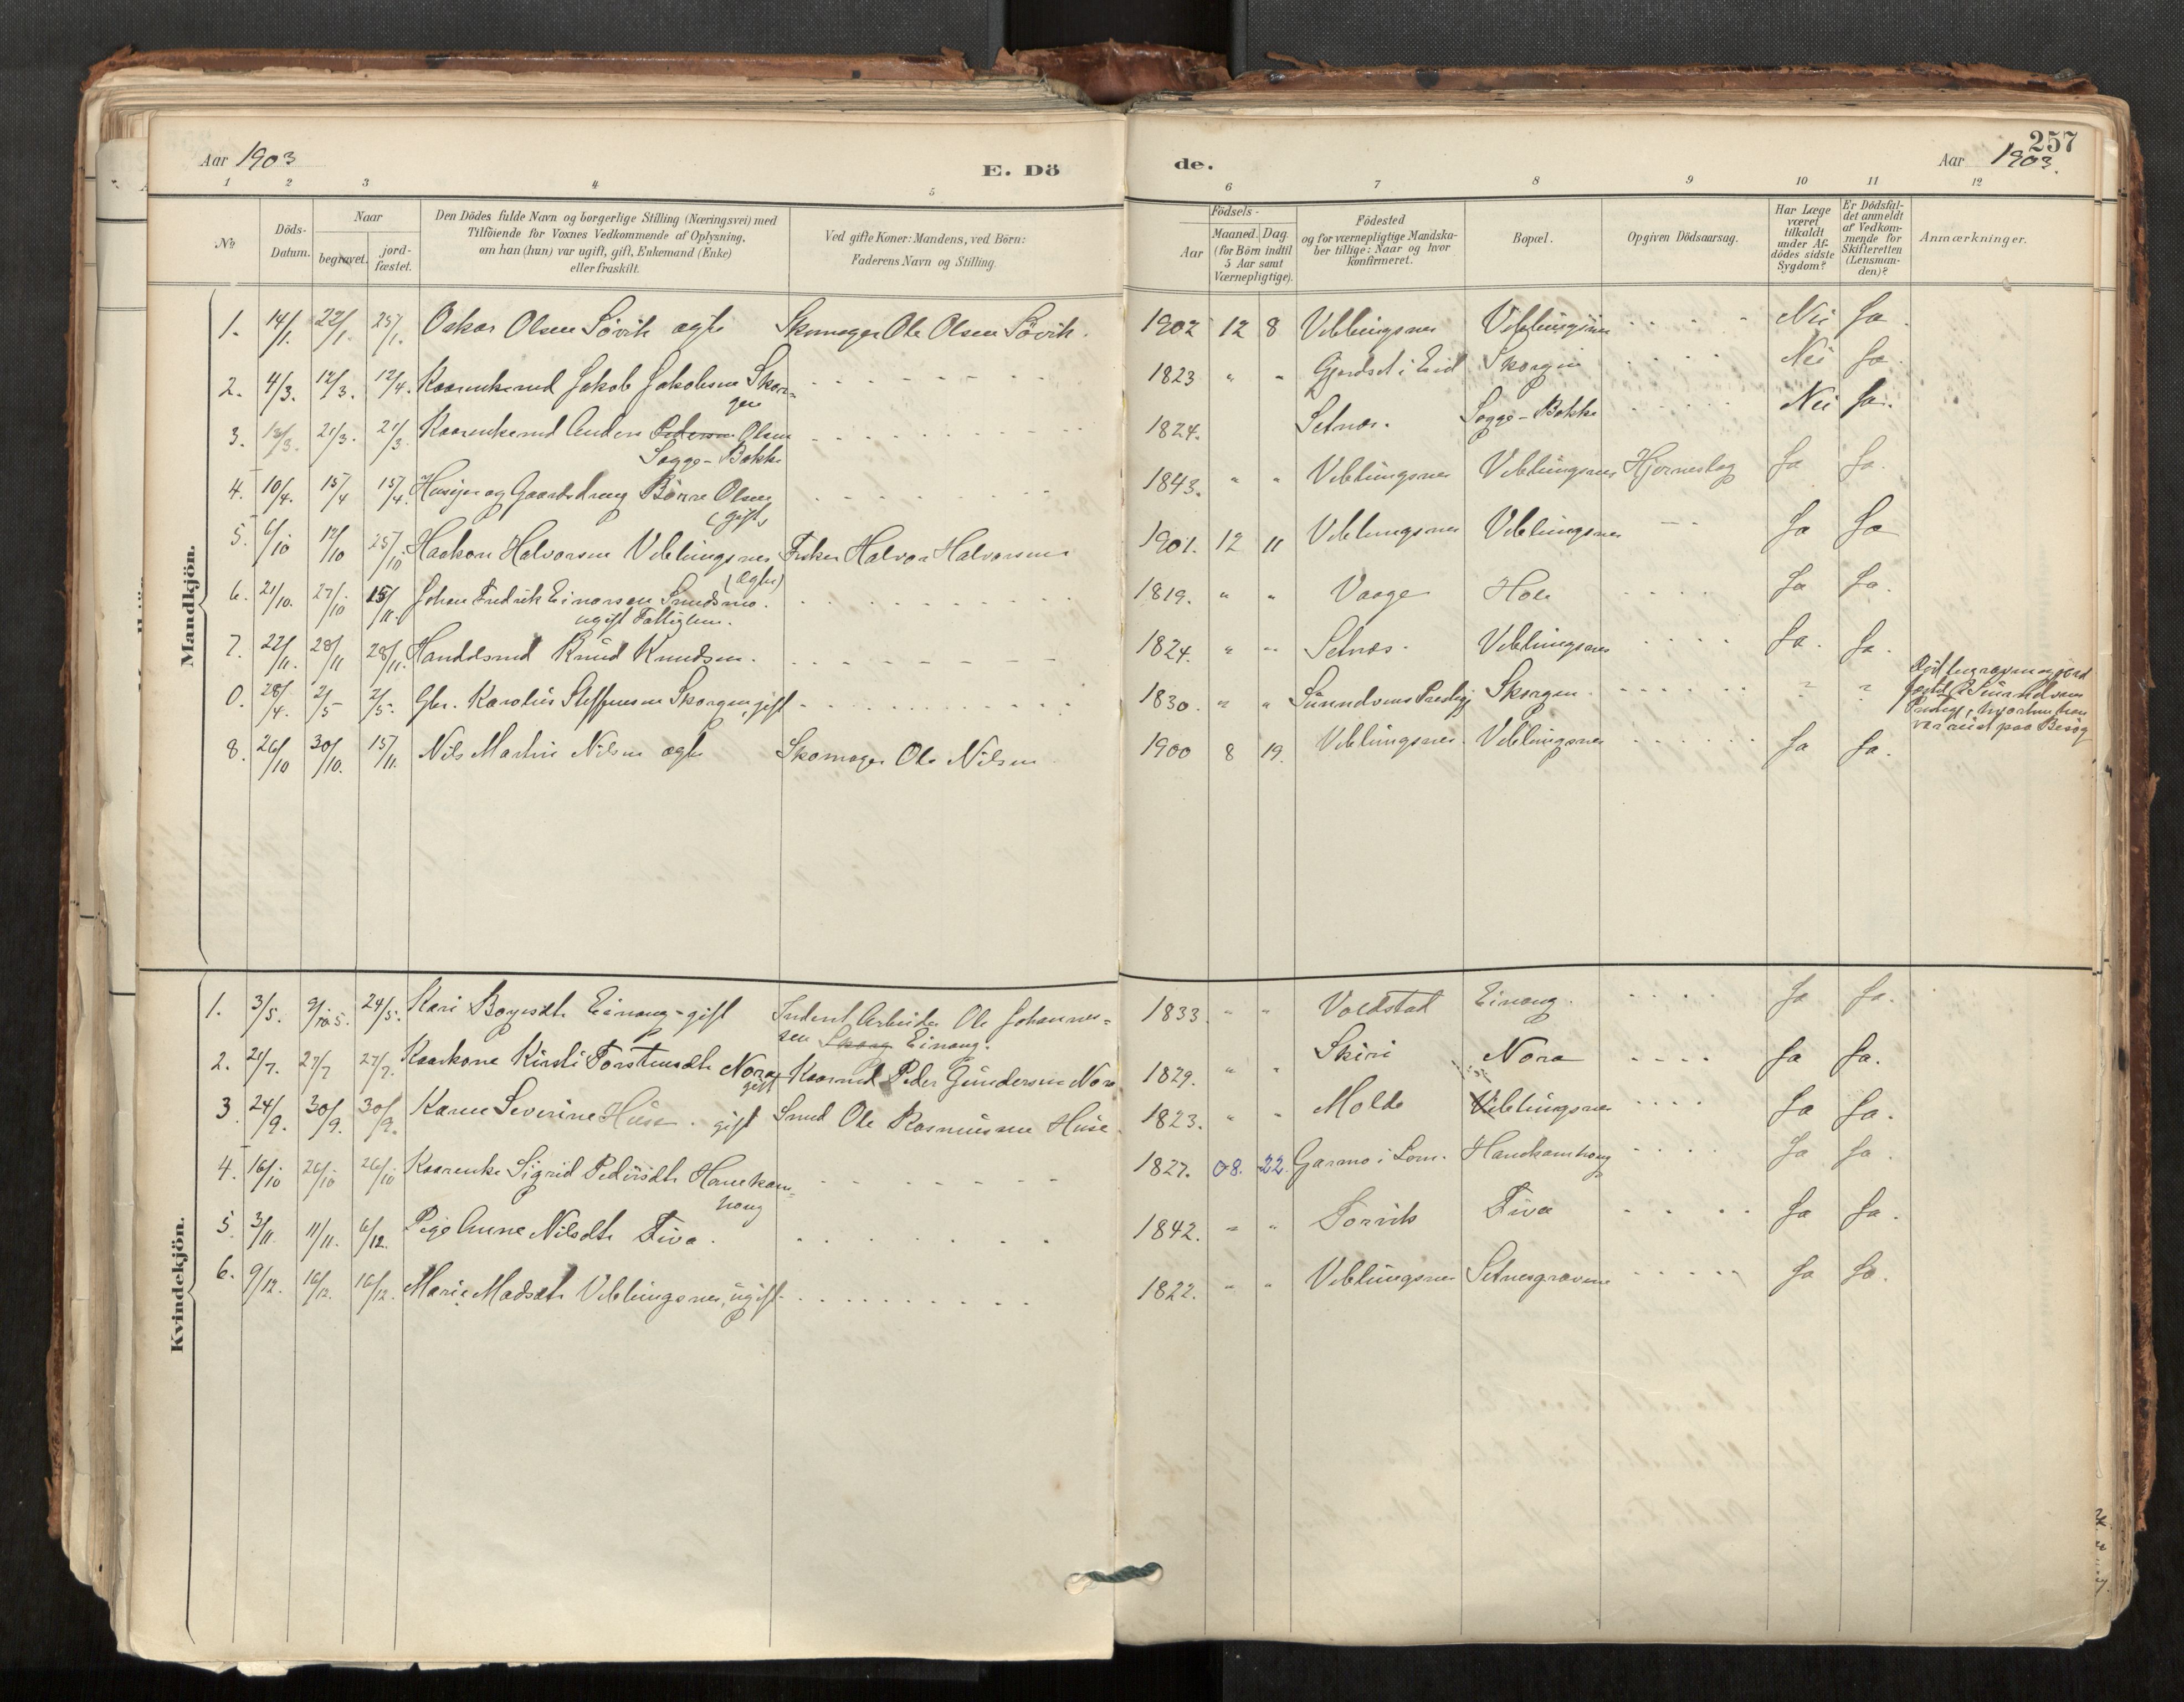 257
Aar 1903 E. Dö de. Aar 1903.
1 2 3 4 5 6 7 8 9 10 11 12
No
Döds-Datum.
Naar
begravet.
jord-fæstet.
Den Dödes fulde Navn og borgerlige Stilling (Næringsvei) med
Tilföiende for Voxnes Vedkommende af Oplysning,
om han (hun) var ugift, gift, Enkemand (Enke)
eller fraskilt.
Ved gifte Koner: Mandens, ved Börn:
Faderens Navn og Stilling.
Födsels-
Aar
Maaned. Dag
(for Börn indtil
5 Aar samt
Værnepligtige).
Födested
og for værnepligtige Mandska-
ber tillige: Naar og hvor
konfirmeret.
Bopæl.
Opgiven Dödsaarsag.
Har Læge
været
tilkaldt
under Af-
dödes sidste
Sygdom?
Er Dödsfal-
det anmeldt
af Vedkom-
mende for
Skifteretten
(Lensman-
den)?
Anmærkninger.
Mandkjön.
1. 14/1. 22/1. 25/1. Oskar Olsen Sövik ægte Skomager Ole Olsen Sövik. 1902 12 8 Veblungsnes Veblungsnes Nei Ja.
2. 4/3. 12/3. 12/4. Kaarenkemd Jakob Jakobsen Skor-
gen 1823 " " Gjerdset i Eid Skorgen Nei Ja
3. 21/3. 21/3 Kaarenkemd Anders Pedersen Olsen
Sogge-Bakke 1824. Setnes. Sogge-Bakke Nei Ja.
4. 10/4. 15/4 15/4. Husejer og Gaardsdreng Börre Olsen
(gift) 1843. " " Veblungsnes Veblungsnes Hjerneslag Ja Ja.
5. 6/10 12/10 25/10 Haakon Halvorsen Veblungsnes Fisker Halvor Halvorsen
(ægte) 1901. 12 11 Veblungsnes Veblungsnes Ja Ja
6. 21/10. 27/10 15/11. Johan Fredrik Einarsen Smedsmo.
ugift Fattiglem. 1819. " " Vaage Hole Ja Ja.
7. 22/11. 28/11 28/11. Handelsmd Knud Knudsen. 1824. " " Setnes. Veblungsnes Ja. Ja.
0. 28/4. 2/5 2/5. Gbr. Karolus Steffensen Skorgen, gift 1830. " " Sunndvens Prestegj Skorgen
var reist paa Besög
8. 26/10 30/10. 15/11. Nils Martin Nilsen ægte Skomager Ole Nilsen 1900 8 19. Veblungsnes. Veblungsnes Ja Ja.
Kvindekjön.
1. 3/5. 24/5. Kari Einang - gift Arbeider Ole Johannes-
sen Skorg Einang. 1833. " " Voldstad Einang. Ja Ja.
2. 21/7. 27/7 27/7. Kaarkone Kirsti Torstensdtr Nora
gift Kaarmd Peder Gundersen Nora 1829. " " Skiri Nora Ja Ja.
3 24/9. 30/9. 30/9. Karen Severine Huse. gift Smed Ole Rasmussen Huse. 1823. " " Molde Veblungsnes Ja Ja.
4. 16/10 26/10 26/10 Kaarenke Sigrid Pedersdtr Hanekam-
houg 1827. 08. 22. Garmo i Lom. Hanekamhoug Ja Ja.
5. 3/11. 11/11. 6/12. Pige Anne Nilsdtr Tiva. 1842. " " Torvik Tiva Ja Ja.
6. 9/12. 16/12. 16/12. Marie Madsdtr Veblungsnes, ugift. 1822. " " Veblungsnes Setnesgrovene Ja Ja.